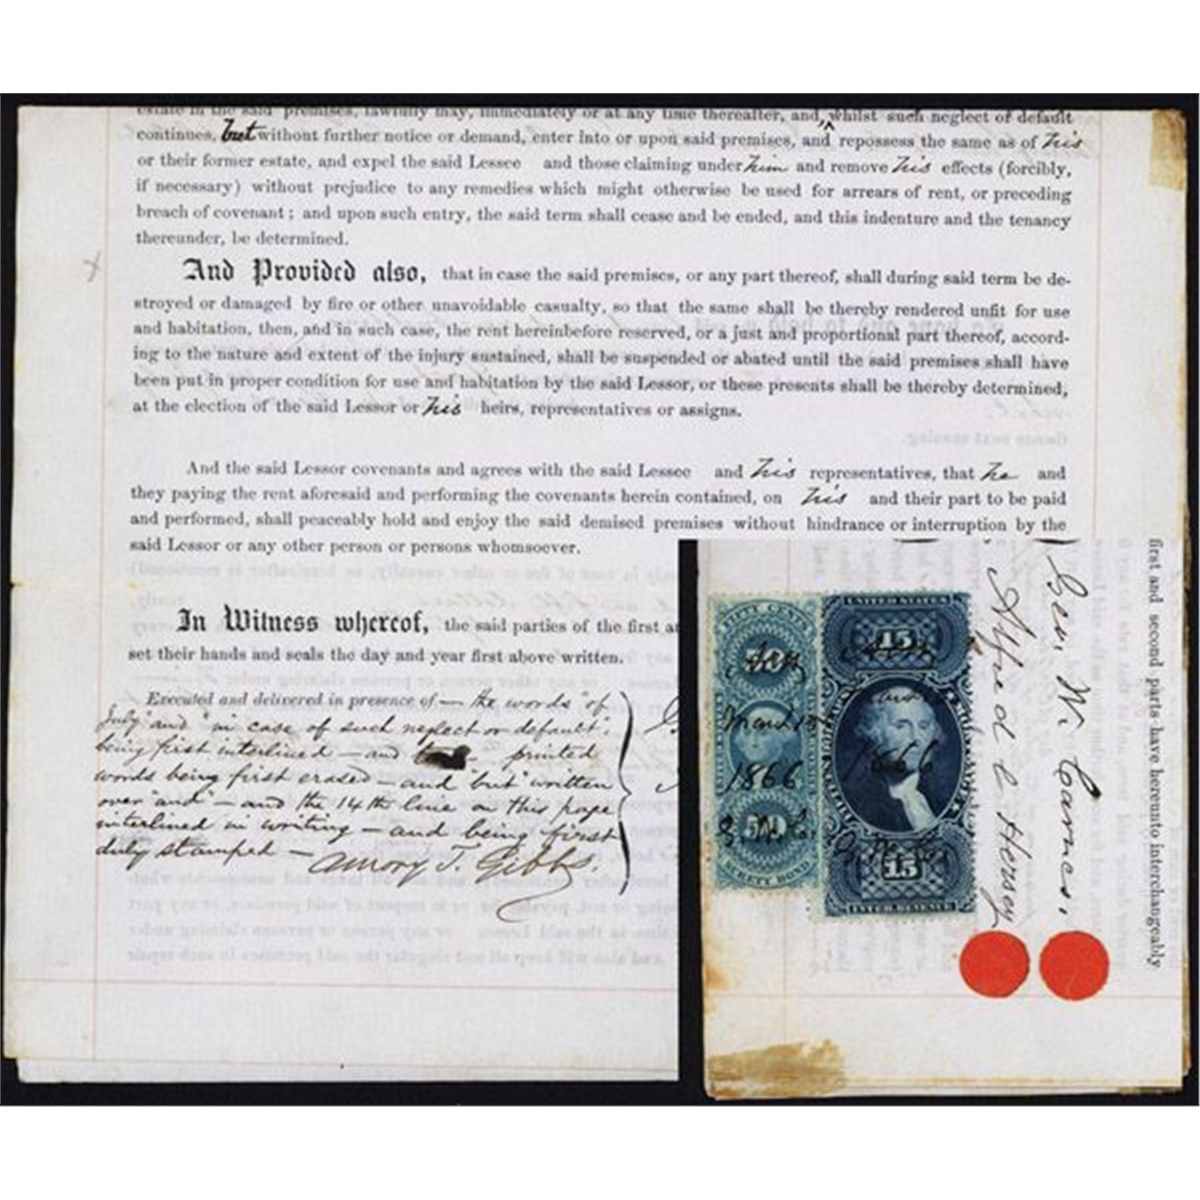 estate in the said premises, lawfully may, immediately or at any time thereafter, and, whilst such neglect of default
continues, but without further notice or demand, enter into or upon said premises, and repossess the same as of his
or their former estate, and expel the said Lessee and those claiming under him and remove his effects (forcibly,
if necessary) without prejudice to any remedies which might otherwise be used for arrears of rent, or preceding
breach of covenant; and upon such entry, the said term shall cease and be ended, and this indenture and the tenancy
thereunder, be determined.
And Provided also, that in case the said premises, or any part thereof, shall during said term be de-
stroyed or damaged by fire or other unavoidable casualty, so that the same shall be thereby rendered unfit for use
and habitation, then, and in such case, the rent hereinbefore reserved, or a just and proportional part thereof, accord-
ing to the nature and extent of the injury sustained, shall be suspended or abated until the said premises shall have
been put in proper condition for use and habitation by the said Lessor, or these presents shall be thereby determined,
at the election of the said Lessor or his heirs, representatives or assigns.
And the said Lessor covenants and agrees with the said Lessee and his representatives, that he and
they paying the rent aforesaid and performing the covenants herein contained, on his and their part to be paid
and performed, shall peaceably hold and enjoy the said demised premises without hindrance or interruption by the
said Lessor or any other person or persons whomsoever.
In Witness whereof, the said parties of the first an
set their hands and seals the day and year first above written.
Executed and delivered in presence of — the words "of
July" and "in case of such neglect or default";
being first interlined — and printed
words being first erased — and "but" written
over "and" — and the 14th line on this page
interlined in writing — and being first
duly stamped —
Amory T. Gibbs.
first and second parts have hereunto interchangeably
Geo. W. Carnes,
Alfred C. Hersey
FIFTY CENTS
50
March 15
1866
G. W. C.
50
SURETY BOND
UNITED STATES
15
1866
G. W. C.
15
INTER. REVENUE